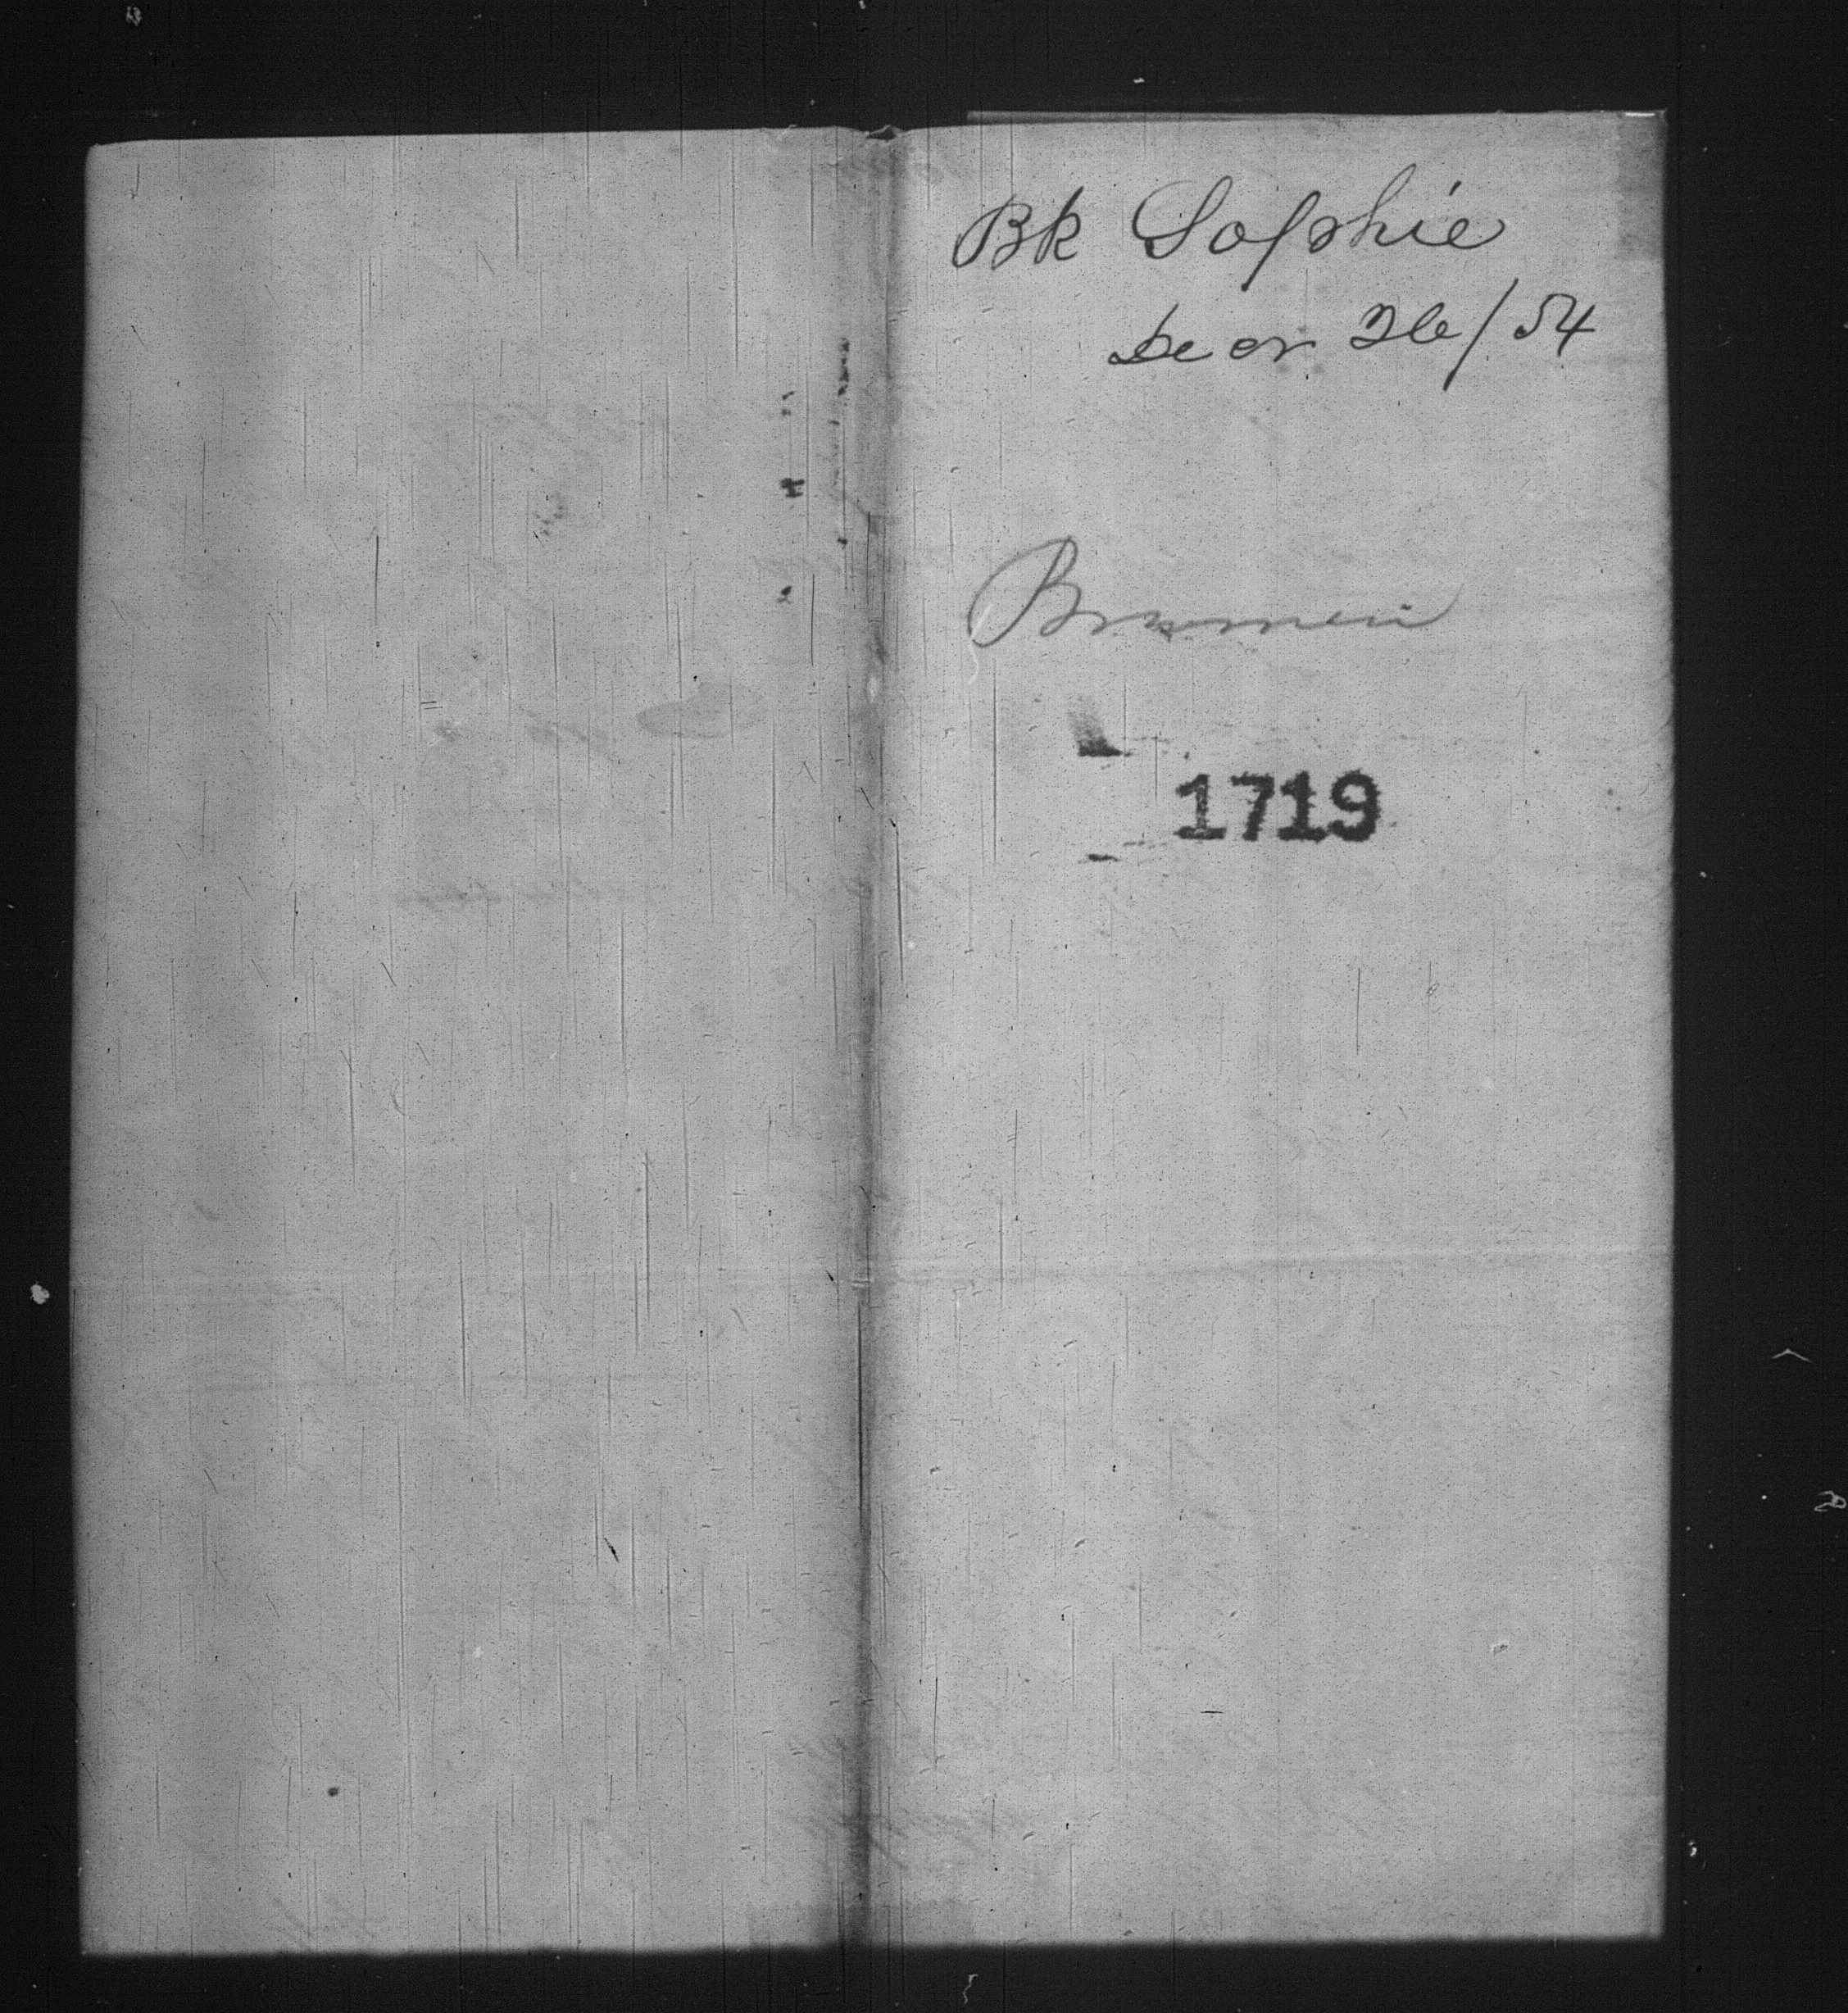 Bk Sophie
Decr 26/54
Bremen
1719